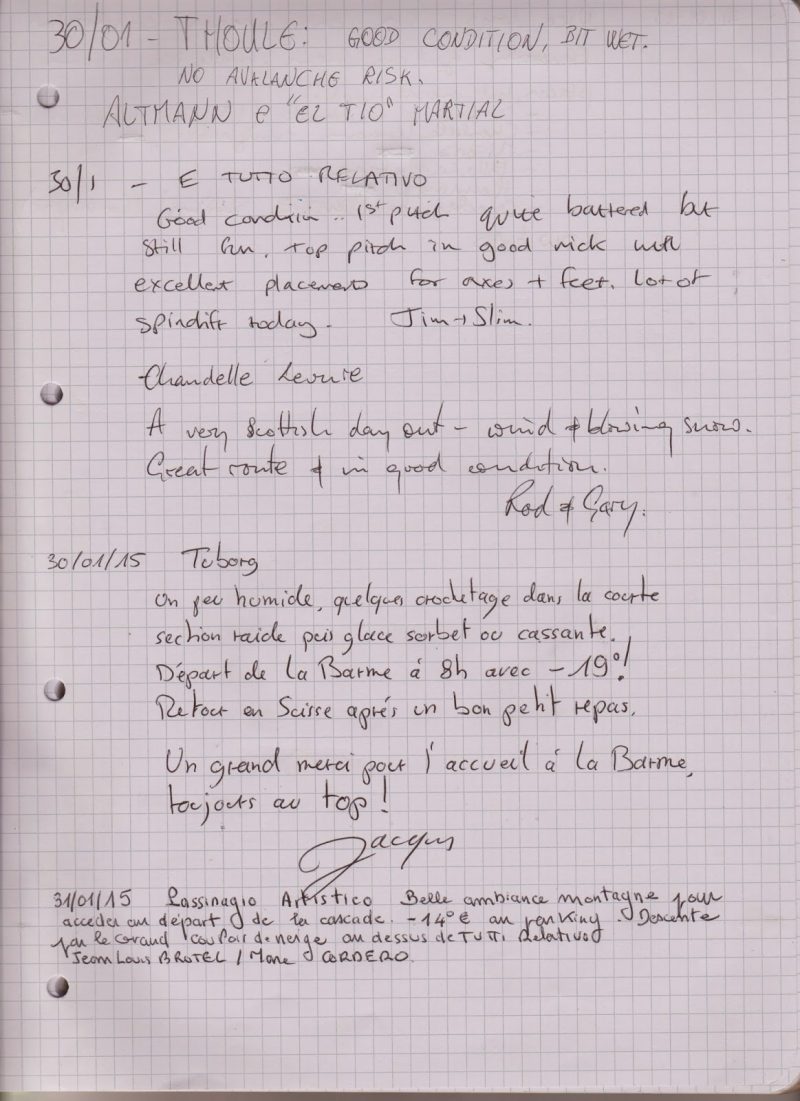 30/01 - THOULE: GOOD CONDITION, BIT WET.
NO AVALANCHE RISK.
ALTMANN e "EL TIO" MARTIAL
30/1 - E TUTTO RELATIVO
Good condition .. 1st pitch quite battered but
still fun, top pitch in good nick with
excellent placements for axes + feet. lot of
spindift today. Jim + Slim.
Chandelle Levure
A very Scottish day out - wind & blowing snow.
Great route & in good condition.
Rod & Gary.
30/01/15 Tuborg
Un peu humide, quelques crochetage dans la courte
section raide puis glace sorbet ou cassante.
Départ de la Barme à 8h avec -19°!
Retour en Suisse après un bon petit repas.
Un grand merci pour l'accueil à la Barme,
toujours au top!
Jacques
31/01/15 Passinagio Artistico Belle ambiance montagne pour
acceder au départ de la cascade. -14°C au parking. Descente
par le grand couloir de neige au dessus de TUTTI Relativo
Jean Louis BROTEL / CORDERO.